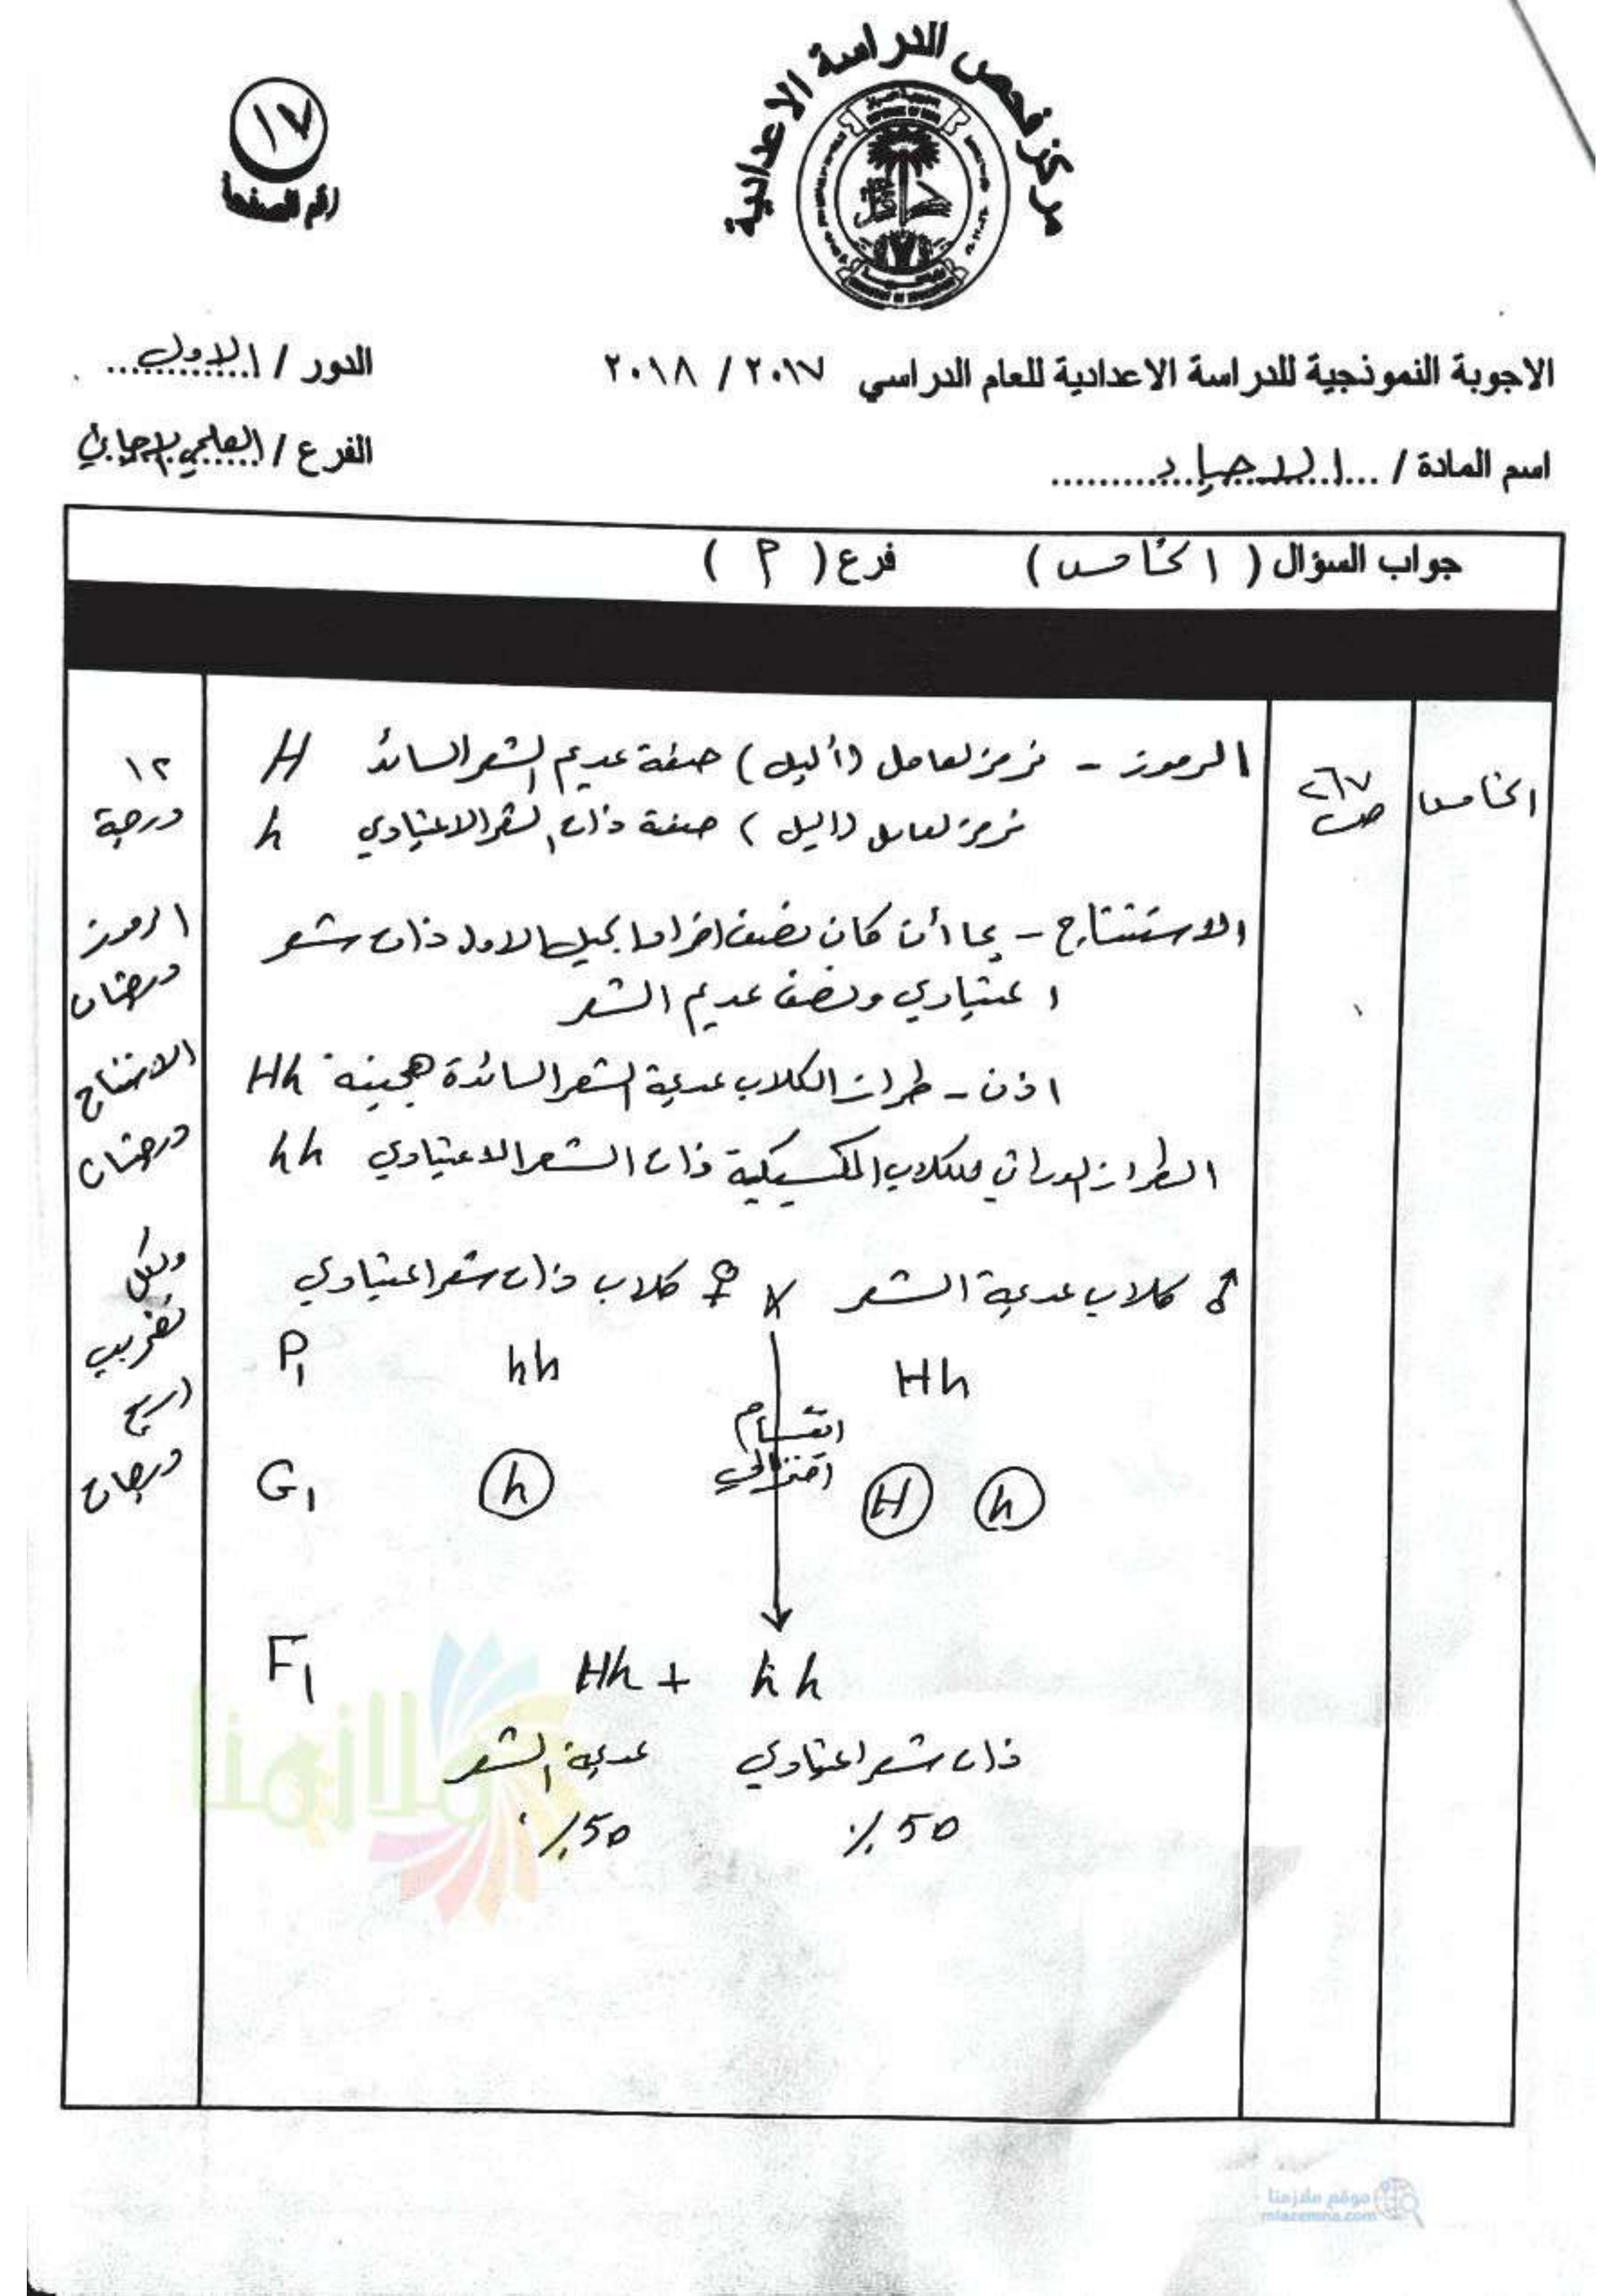 مركز فحص الدراسة الاعدادية
١٧
رقم الصفحة
الاجوبة النموذجية للدراسة الاعدادية للعام الدراسي ٢٠١٧ / ٢٠١٨
الدور / الاول
اسم المادة / الاحياء
الفرع / العلمي الاحيائي
جواب السؤال ( الخامس ) فرع ( أ )
الخامس
٢٦٧
ص
الرموز - نرمز لعامل (أليل) صفة عديم الشعر السائد H
نرمز لعامل (اليل) صفة ذات الشعر الاعتيادي h
الاستنتاج - بما أن كان نصف افراد الجيل الاول ذات شعر
اعتيادي ونصف عديم الشعر
اذن - طراز الكلاب عديمة الشعر السائدة هجينة Hh
الطراز الوراثي للكلاب المكسيكية ذات الشعر الاعتيادي hh
♂ كلاب عديمة الشعر X ♀ كلاب ذات شعر اعتيادي
P1 hh Hh
انقسام
اختزالي
G1 h H h
F1 Hh + hh
عديمة الشعر ذات شعر اعتيادي
٪50 ٪50
١٢
درجة
الرموز
درجتان
الاستنتاج
درجتان
ولكل
تضريب
اربع
درجات
ملازمنا
موقع ملازمنا
mlazemna.com